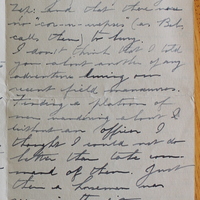 Zep. And that there were
no "cor-n-wopers" (as Bab
calls them) to buy.
I don't think that I told
you about another of my
adventures during our
recent field manœuvres.
Finding a platoon of
men wandering about
without an officer I
thought I could not do
better than take com-
mand of them. Just
then a horseman was